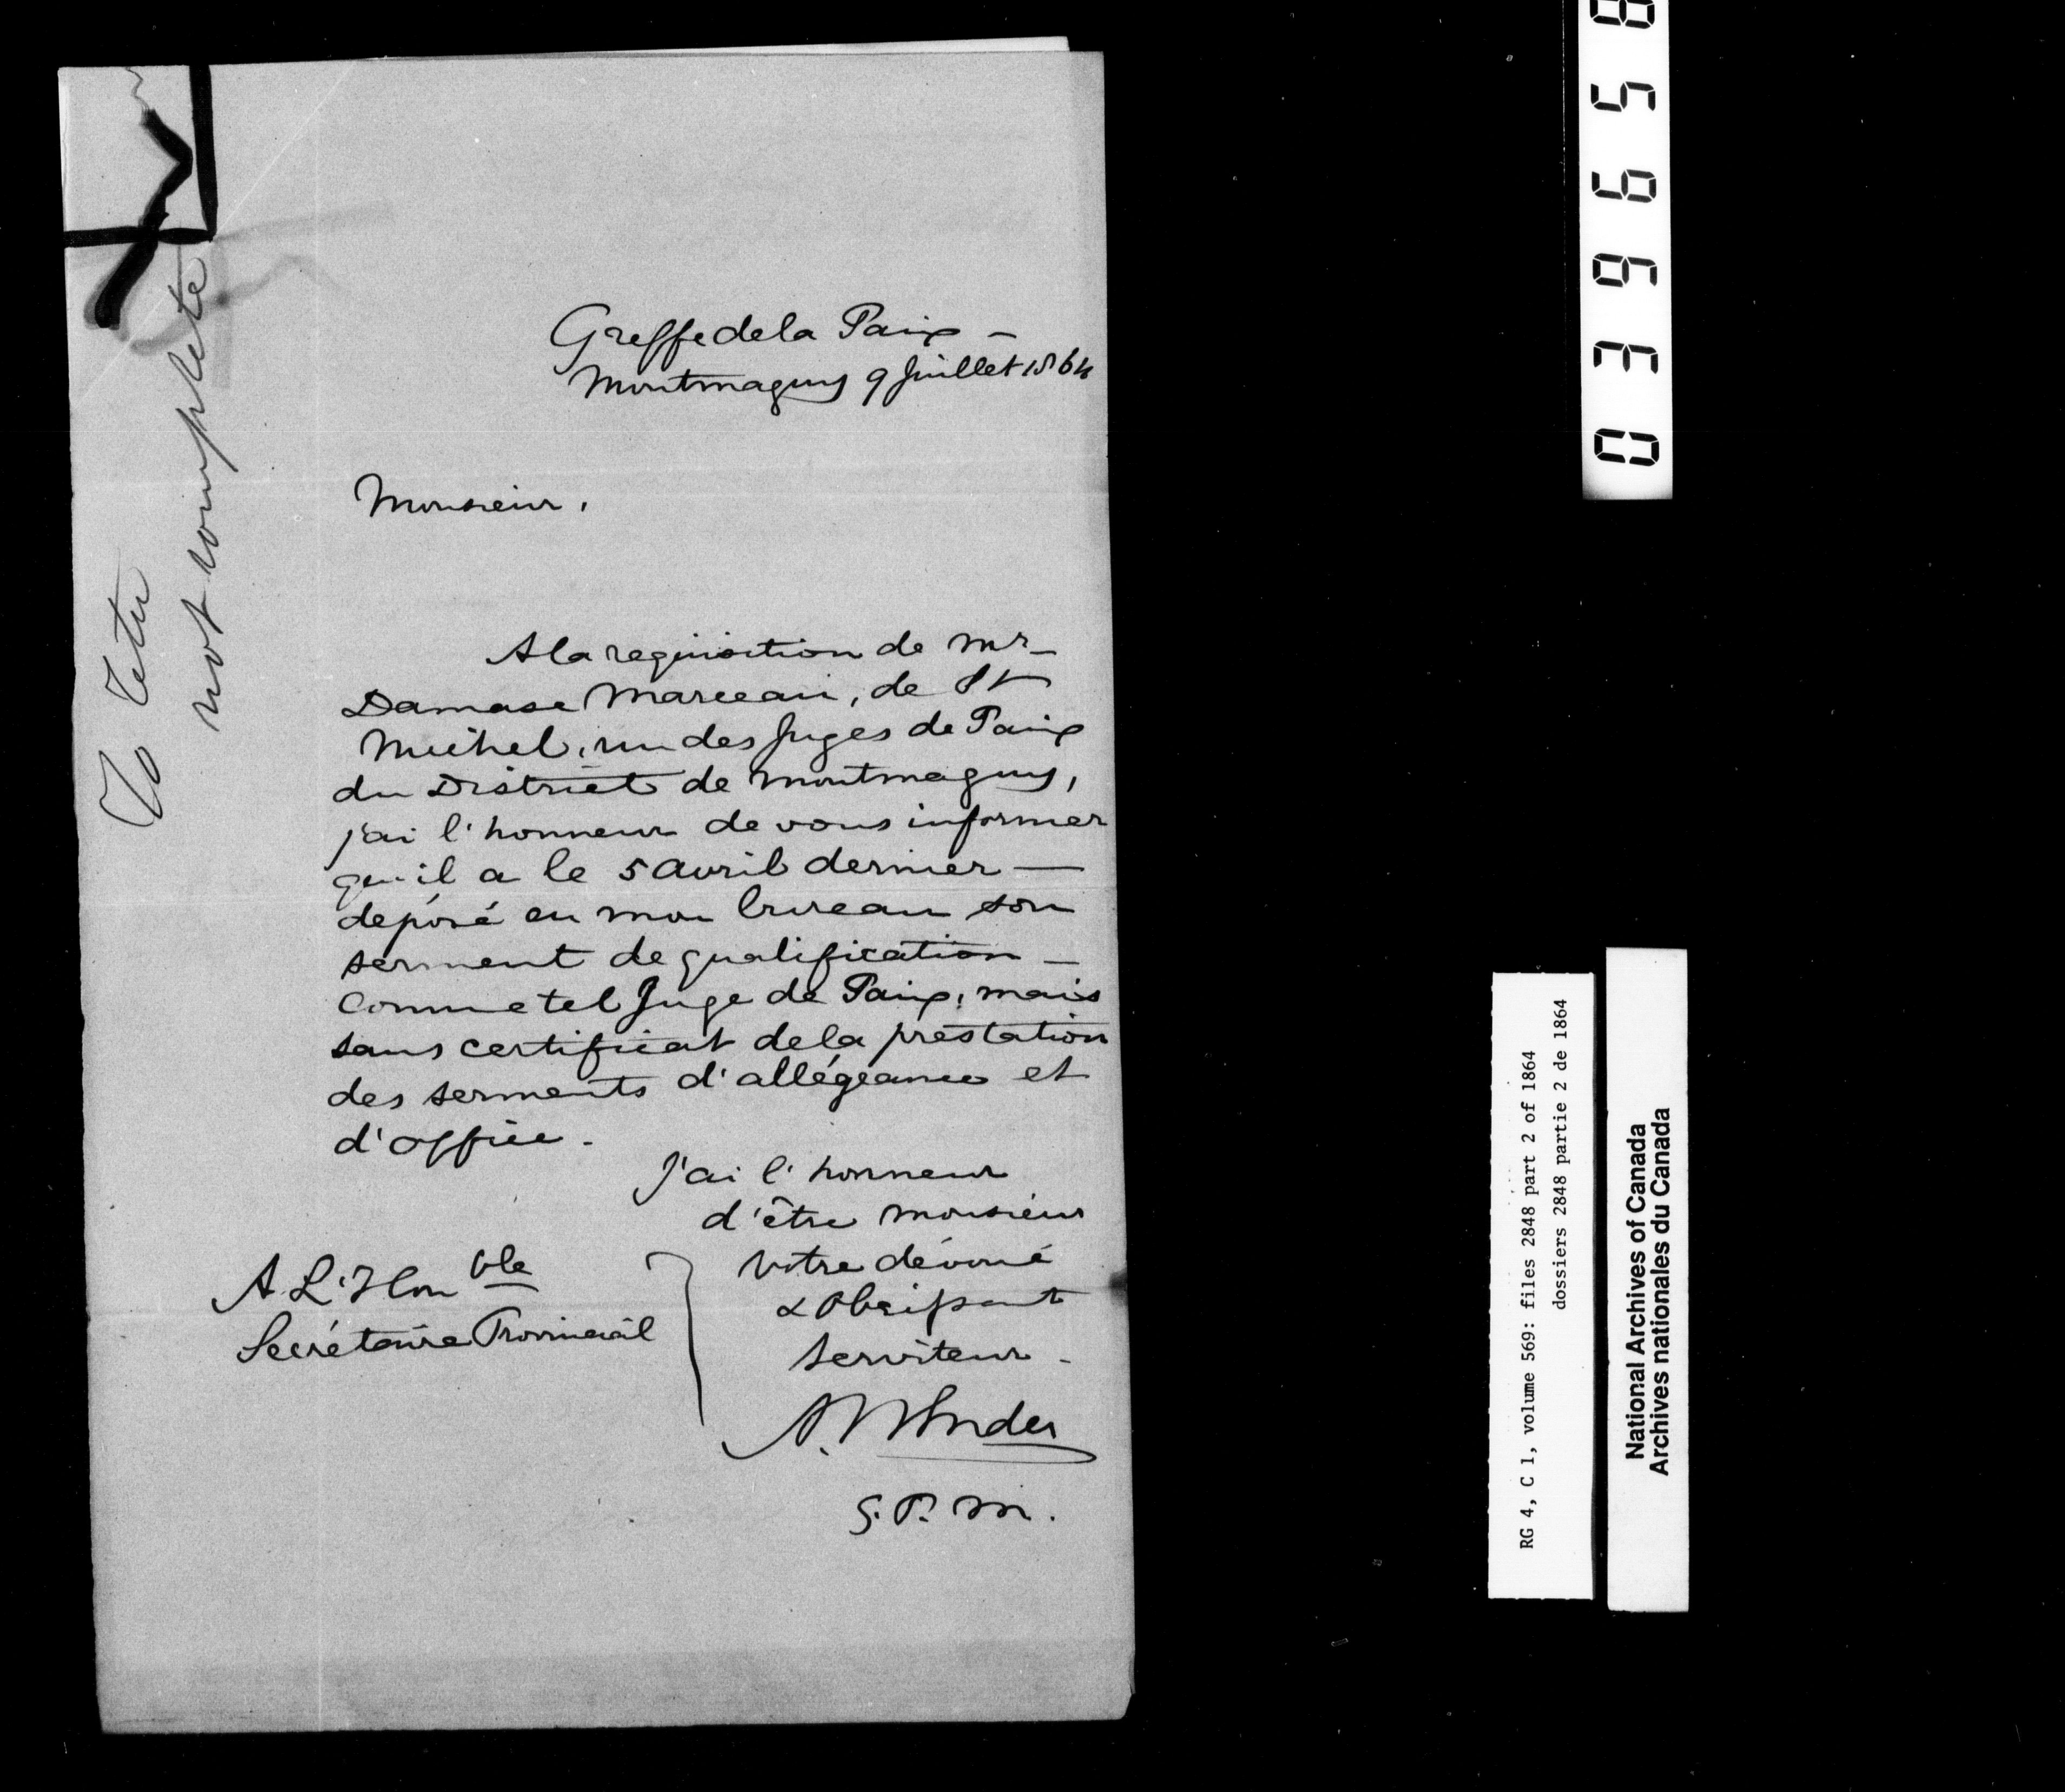 Greffe de la Paix —
Montmagny 9 Juillet 1864
Monsieur,
A la requisition de Mr —
Damase Marceau, de St
Michel, un des Juges de Paix
du District de Montmagny,
j'ai l'honneur de vous informer
qu'il a le 5 Avril dernier —
déposé en mon bureau son
serment de qualification —
comme tel Juge de Paix, mais
sans certificat de la prestation
des serments d'allégeance et
d'office.
J'ai l'honneur
d'être Monsieur
Votre dévoué
& Obéissant
Serviteur.
A.
G. P. M.
A L'Honble
Secrétaire Provincial
To
not complete
039658
RG 4, C 1, volume 569: files 2848 part 2 of 1864
dossiers 2848 partie 2 de 1864
National Archives of Canada
Archives nationales du Canada